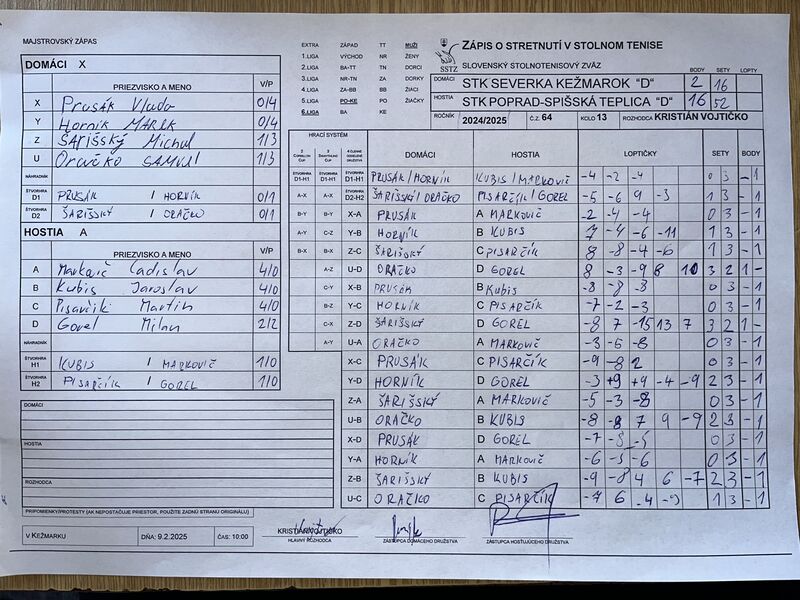 MAJSTROVSKÝ ZÁPAS
DOMÁCI X
PRIEZVISKO A MENO V/P
X Prusák Vlado 0/4
Y Horník MAREK 0/4
Z ŠARIŠSKÝ Michal 1/3
U Oračko SAMUEL 1/3
NÁHRADNÍK
ŠTVORHRA D1 PRUSÁK / HORNÍK 0/1
ŠTVORHRA D2 ŠARIŠSKÝ / ORAČKO 0/1
HOSTIA A
PRIEZVISKO A MENO V/P
A Markovič Ladislav 4/0
B Kubis Jaroslav 4/0
C Pisarčík Martin 4/0
D Gorel Milan 2/2
NÁHRADNÍK
ŠTVORHRA H1 KUBIS / MARKOVIČ 1/0
ŠTVORHRA H2 PISARČÍK / GOREL 1/0
DOMÁCI
HOSTIA
ROZHODCA
PRIPOMIENKY/PROTESTY (AK NEPOSTAČUJE PRIESTOR, POUŽITE ZADNÚ STRANU ORIGINÁLU)
V KEŽMARKU DŇA: 9.2.2025 ČAS: 10:00
EXTRA ZÁPAD TT MUŽI
1.LIGA VÝCHOD NR ŽENY
2.LIGA BA-TT TN DORCI
3.LIGA NR-TN ZA DORKY
4.LIGA ZA-BB BB ŽIACI
5.LIGA PO-KE PO ŽIAČKY
6.LIGA BA KE
SSTZ
ZÁPIS O STRETNUTÍ V STOLNOM TENISE
SLOVENSKÝ STOLNOTENISOVÝ ZVÄZ
BODY SETY LOPTY
DOMÁCI STK SEVERKA KEŽMAROK "D" 2 16
HOSTIA STK POPRAD-SPIŠSKÁ TEPLICA "D" 16 52
ROČNÍK 2024/2025 Č.Z. 64 KOLO 13 ROZHODCA KRISTIÁN VOJTIČKO
HRACÍ SYSTÉM DOMÁCI HOSTIA LOPTIČKY SETY BODY
ŠTVORHRA D1-H1 ŠTVORHRA D1-H1 ŠTVORHRA D1-H1 PRUSÁK/HORNÍK KUBIS/MARKOVIČ -4 -2 -4 0 3 - 1
A-X A-X ŠTVORHRA D2-H2 ŠARIŠSKÝ/ORAČKO PISARČÍK/GOREL -5 -6 9 -3 1 3 - 1
B-Y B-Y X-A PRUSÁK A MARKOVIČ -2 -4 -4 0 3 - 1
A-Y C-Z Y-B HORNÍK B KUBIS 7 -4 -6 -11 1 3 - 1
B-X B-X Z-C ŠARIŠSKÝ C PISARČÍK 8 -8 -4 -6 1 3 - 1
A-Z U-D ORAČKO D GOREL 8 -3 -9 8 10 3 2 1 -
C-X X-B PRUSÁK B Kubis -8 -8 -3 0 3 - 1
B-Z Y-C HORNÍK C PISARČÍK -7 -2 -3 0 3 - 1
C-X Z-D ŠARIŠSKÝ D GOREL -8 7 -15 13 7 3 2 1 -
A-Y U-A ORAČKO A MARKOVIČ -3 -6 -8 0 3 - 1
X-C PRUSÁK C PISARČÍK -9 -8 2 0 3 - 1
Y-D HORNÍK D GOREL -3 +9 +9 -4 -9 2 3 - 1
Z-A ŠARIŠSKÝ A MARKOVIČ -5 -3 -8 0 3 - 1
U-B ORAČKO B KUBIS -8 -8 7 9 -9 2 3 - 1
X-D PRUSÁK D GOREL -7 -3 -5 0 3 - 1
Y-A HORNÍK A MARKOVIČ -6 -5 -6 0 3 - 1
Z-B ŠARIŠSKÝ B KUBIS -9 -8 4 6 -7 2 3 - 1
U-C ORAČKO C PISARČÍK -7 6 -4 -9 1 3 - 1
KRISTIÁN VOJTIČKO
HLAVNÝ ROZHODCA ZÁSTUPCA DOMÁCEHO DRUŽSTVA ZÁSTUPCA HOSŤUJÚCEHO DRUŽSTVA